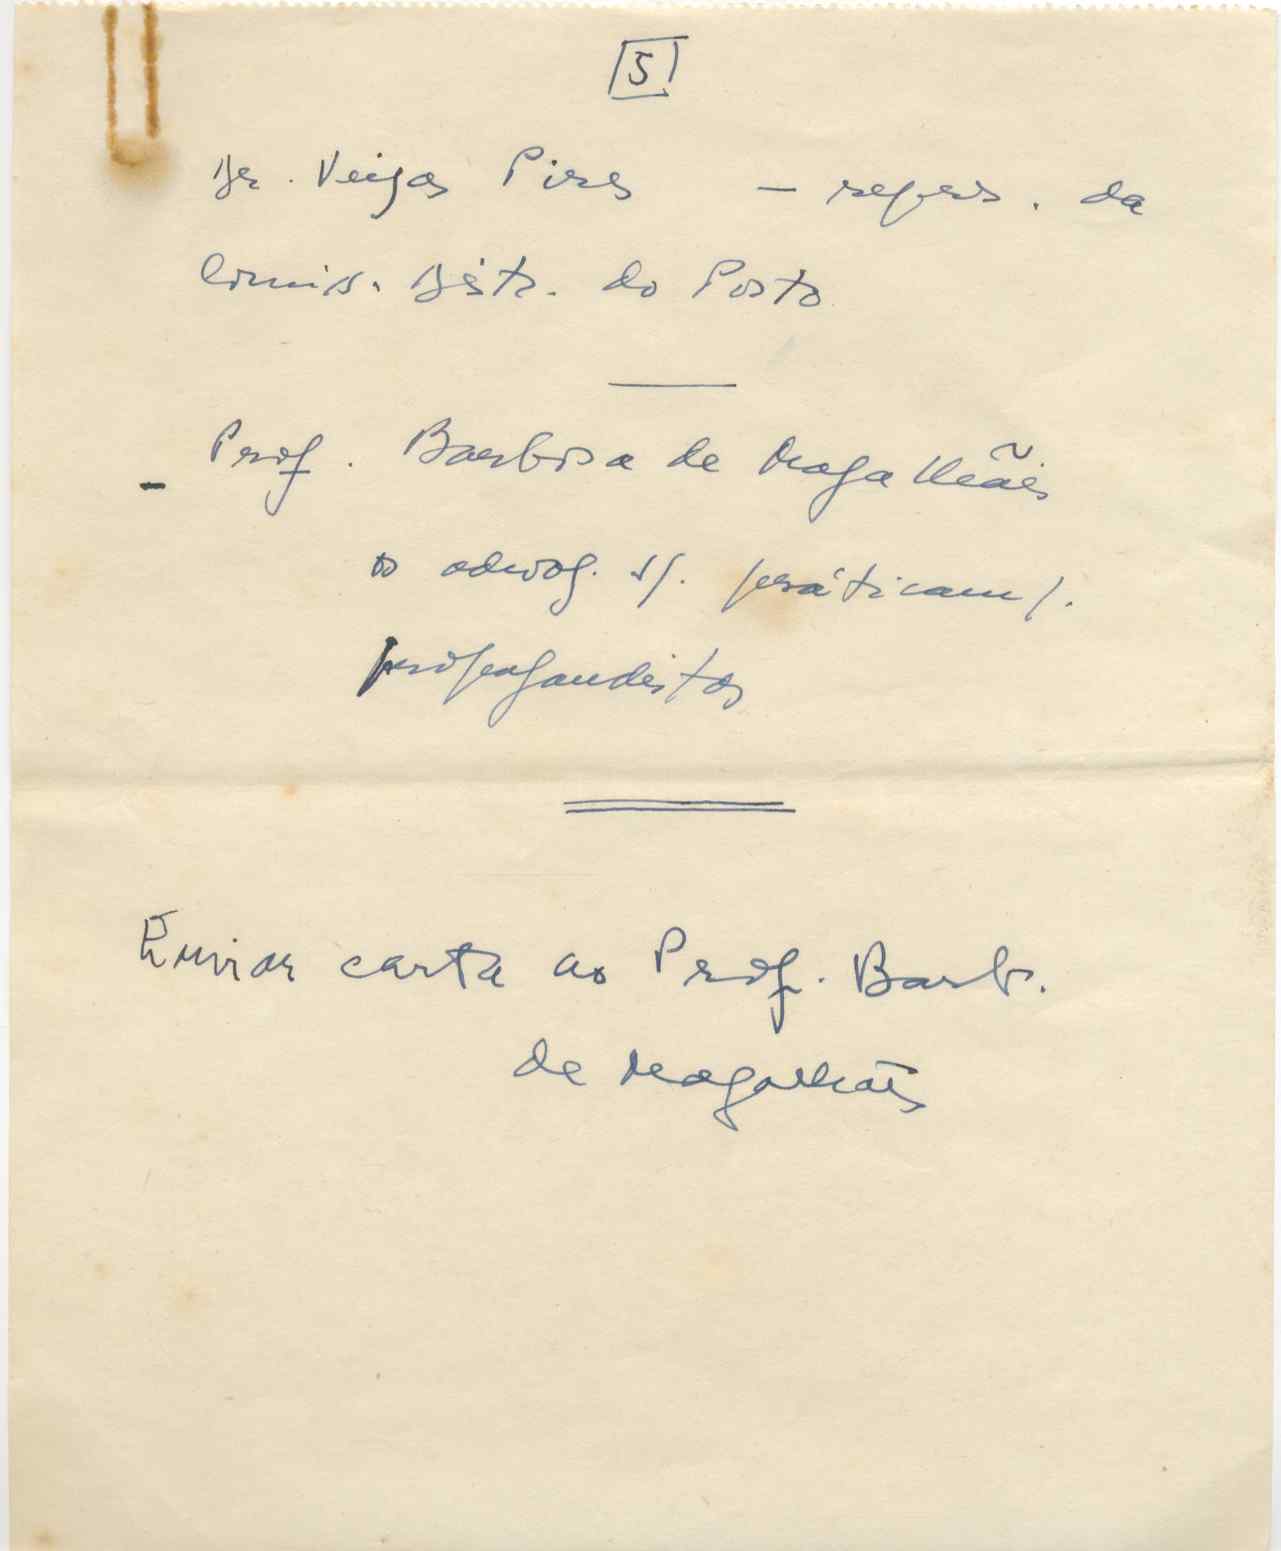 5
Dr. Veiga Pires — repres. da
Comis. Distr. do Porto
- Prof. Barbosa de Magalhães
os advog. s/. práticam/.
propagandistas
Enviar carta ao Prof. Barb.
de Magalhães